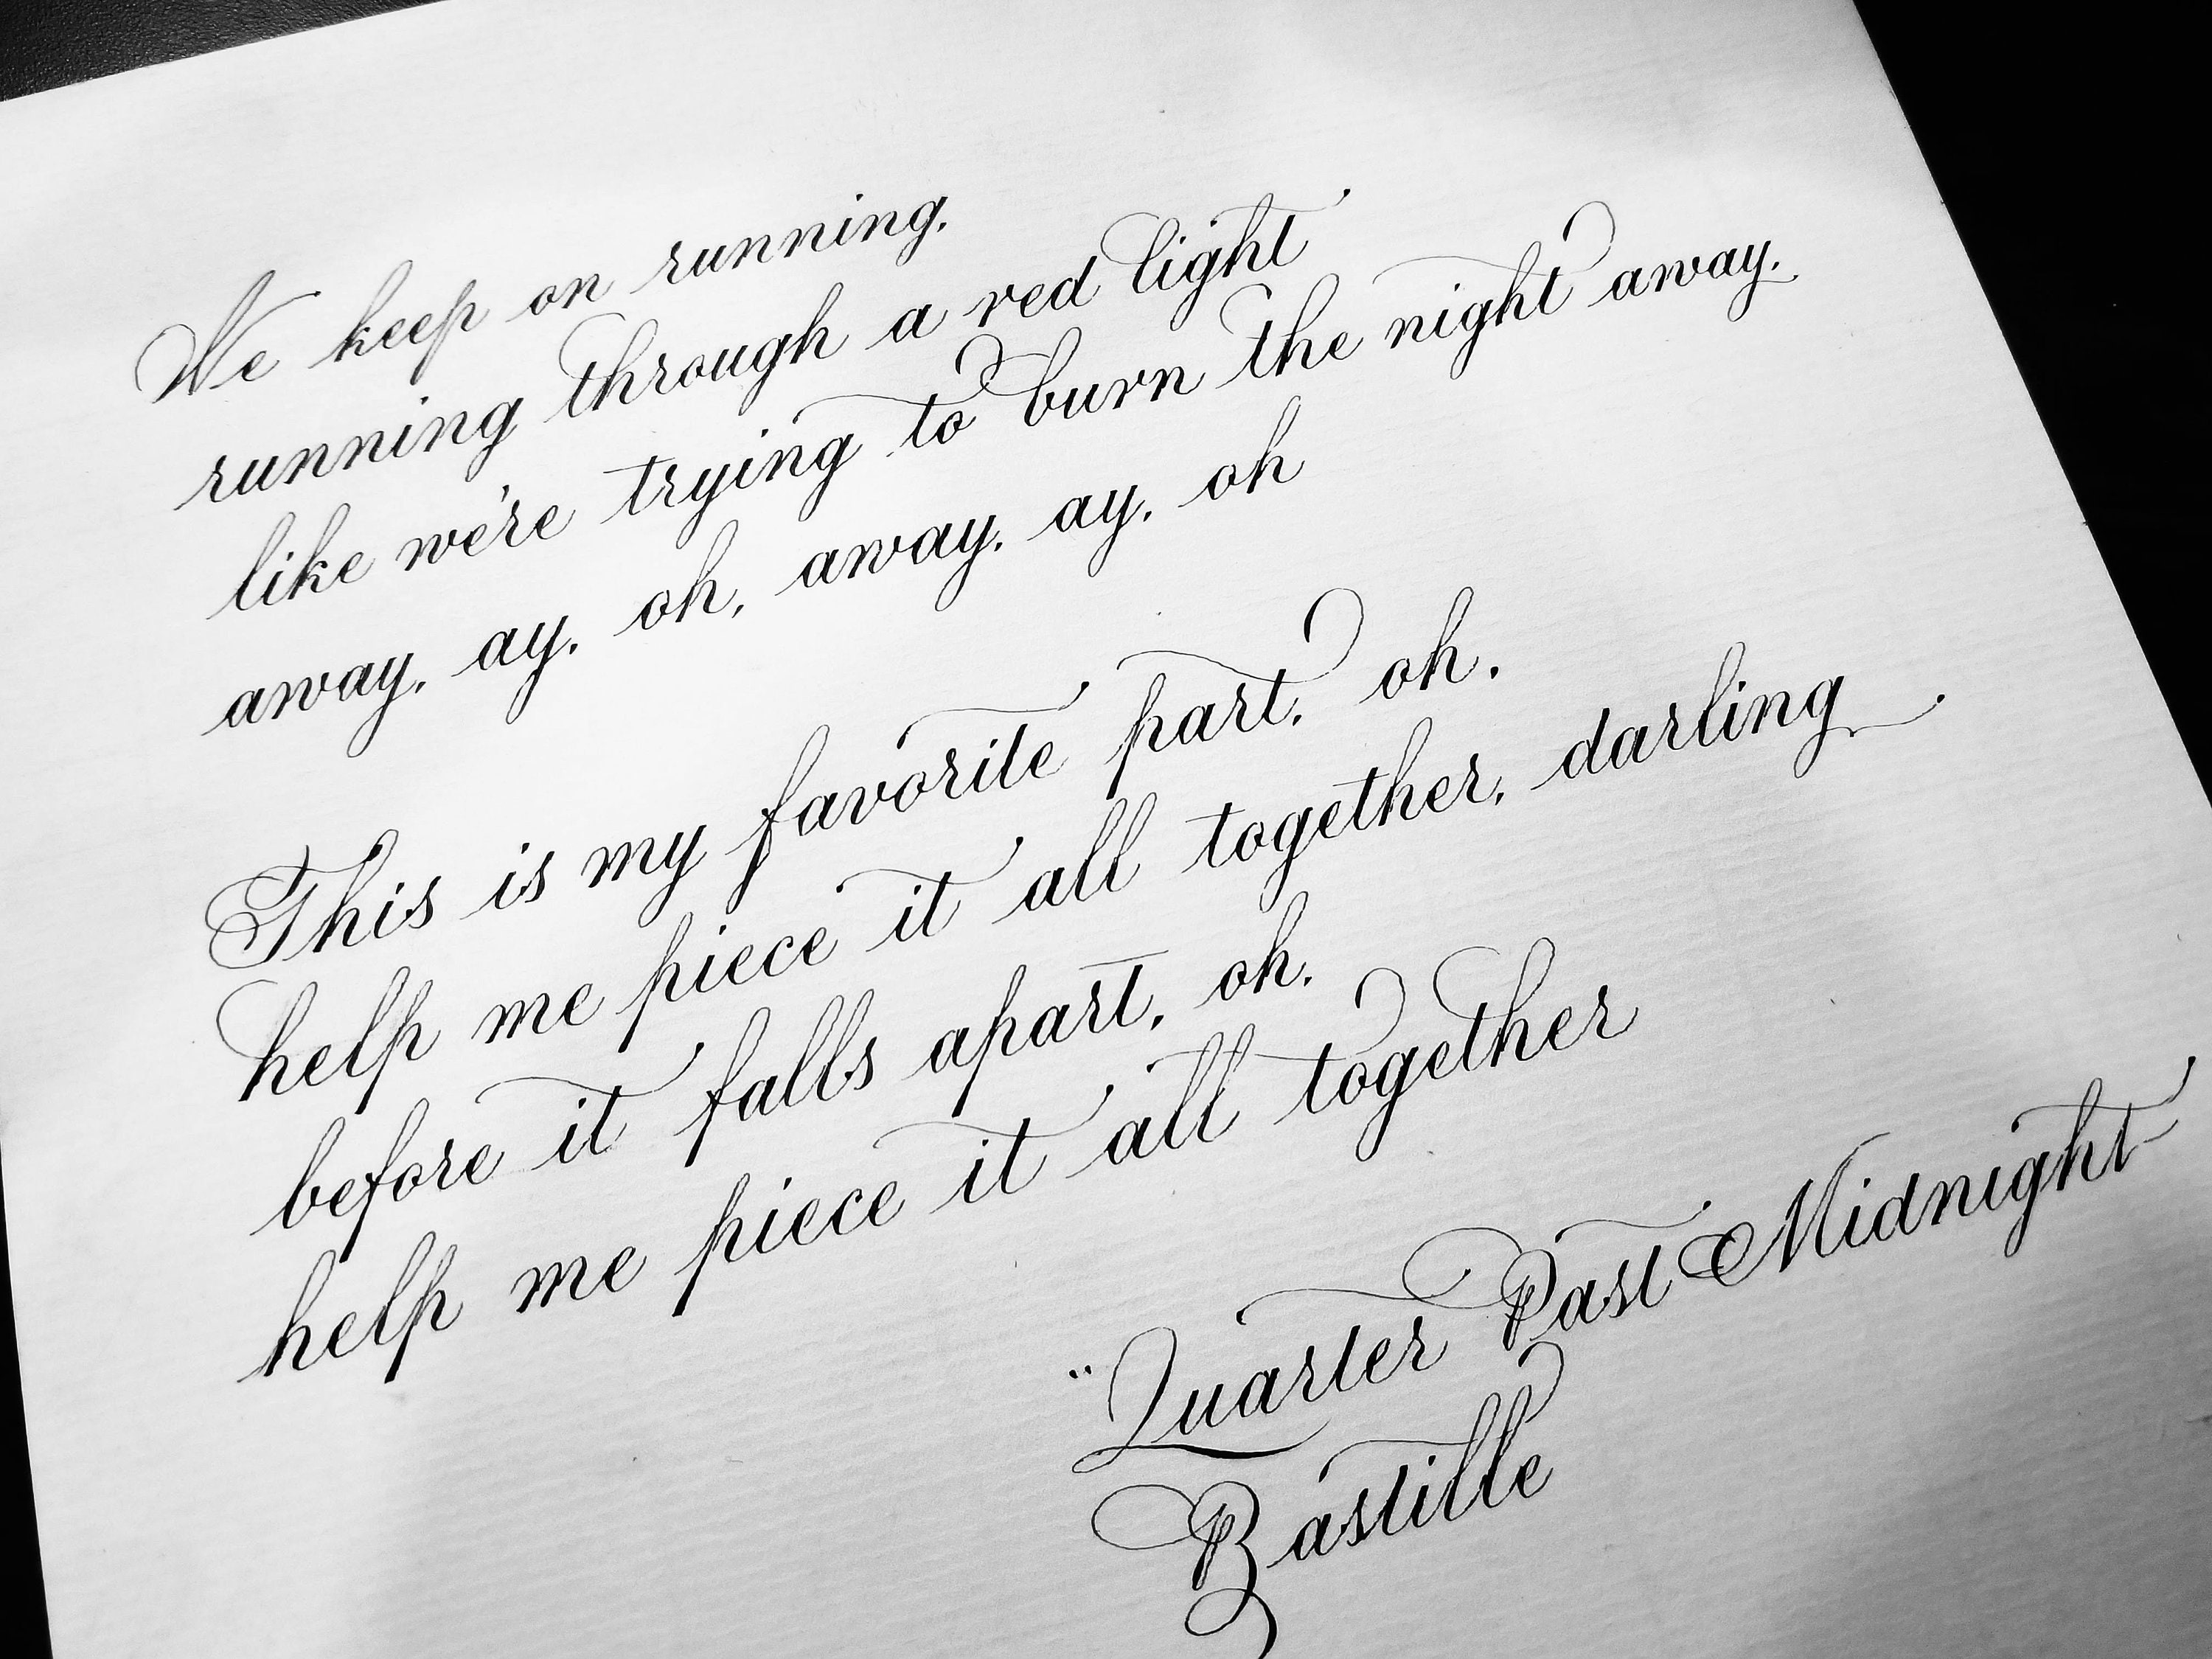 We keep on running,
running through a red light
like we're trying to burn the night away,
away, ay, oh, away, ay, oh
This is my favorite part, oh,
help me piece it all together, darling
before it falls apart, oh,
help me piece it all together
"Quarter Past Midnight
Bastille